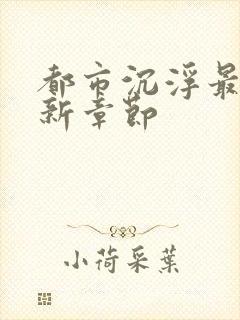 都市沉浮最
新章节
小荷采葉